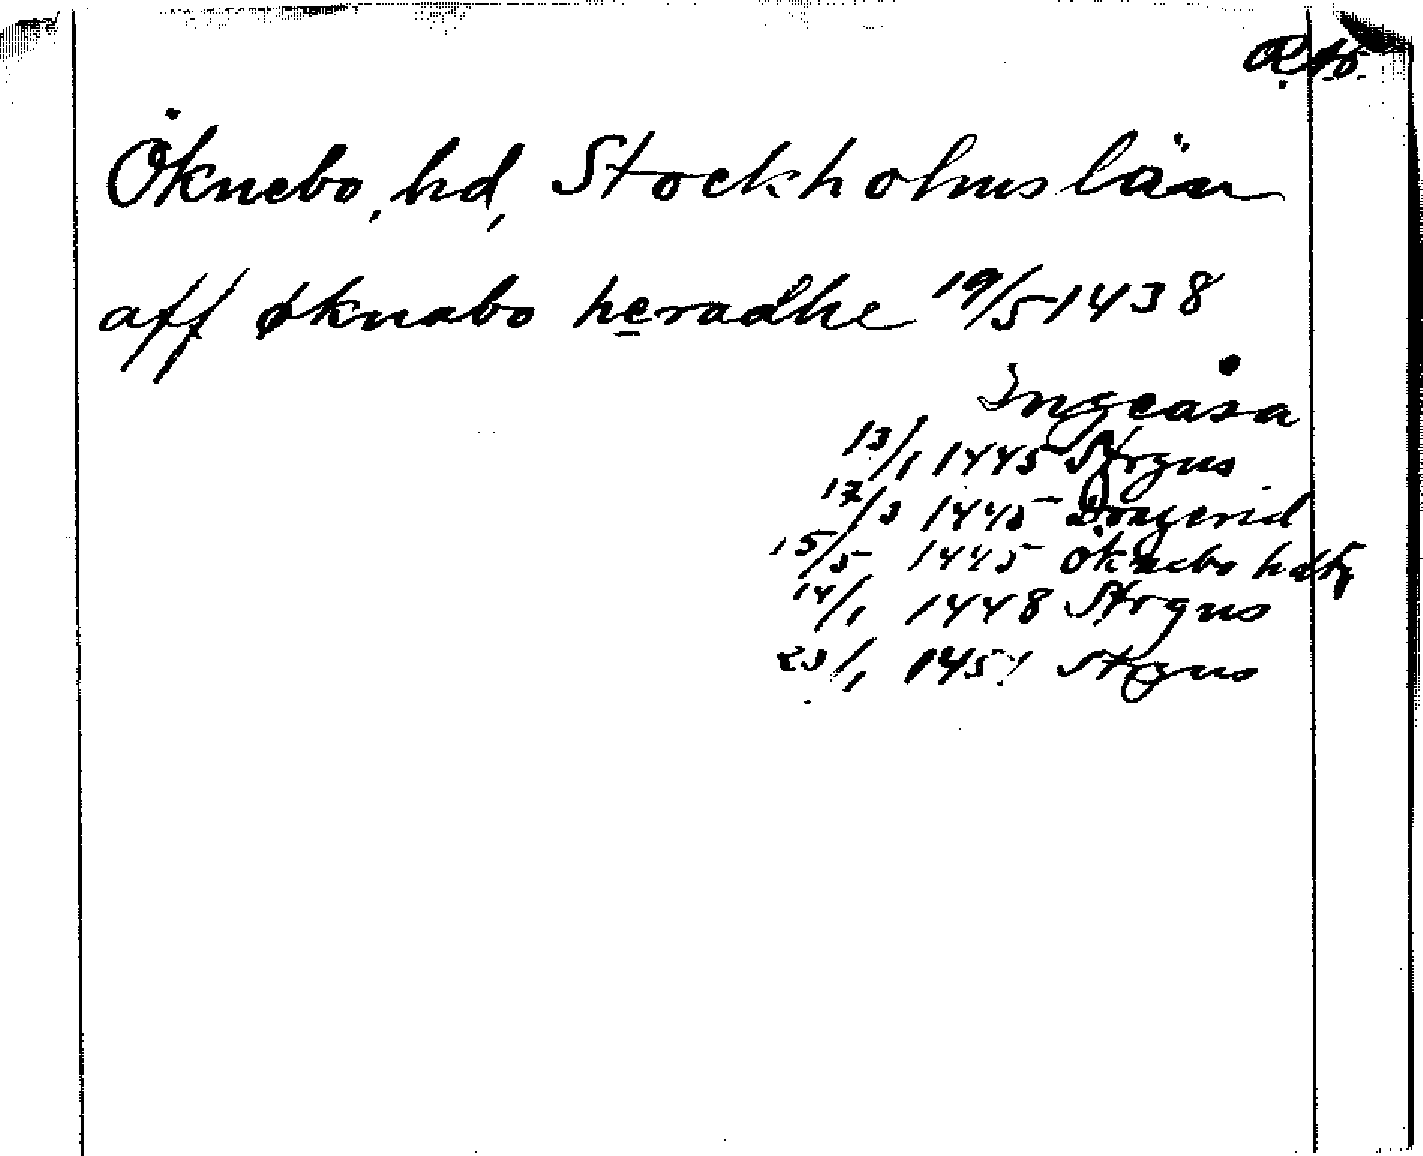 Öknebo, hd, Stockholms län
aff øknabo heradhe 19/5 1438
Ingeåsa
13/1 1445 Strgns
17/3 1445
15/5 1445 Öknebo hdtg
14/1 1448 Strgns
23/1 1451 Stgns